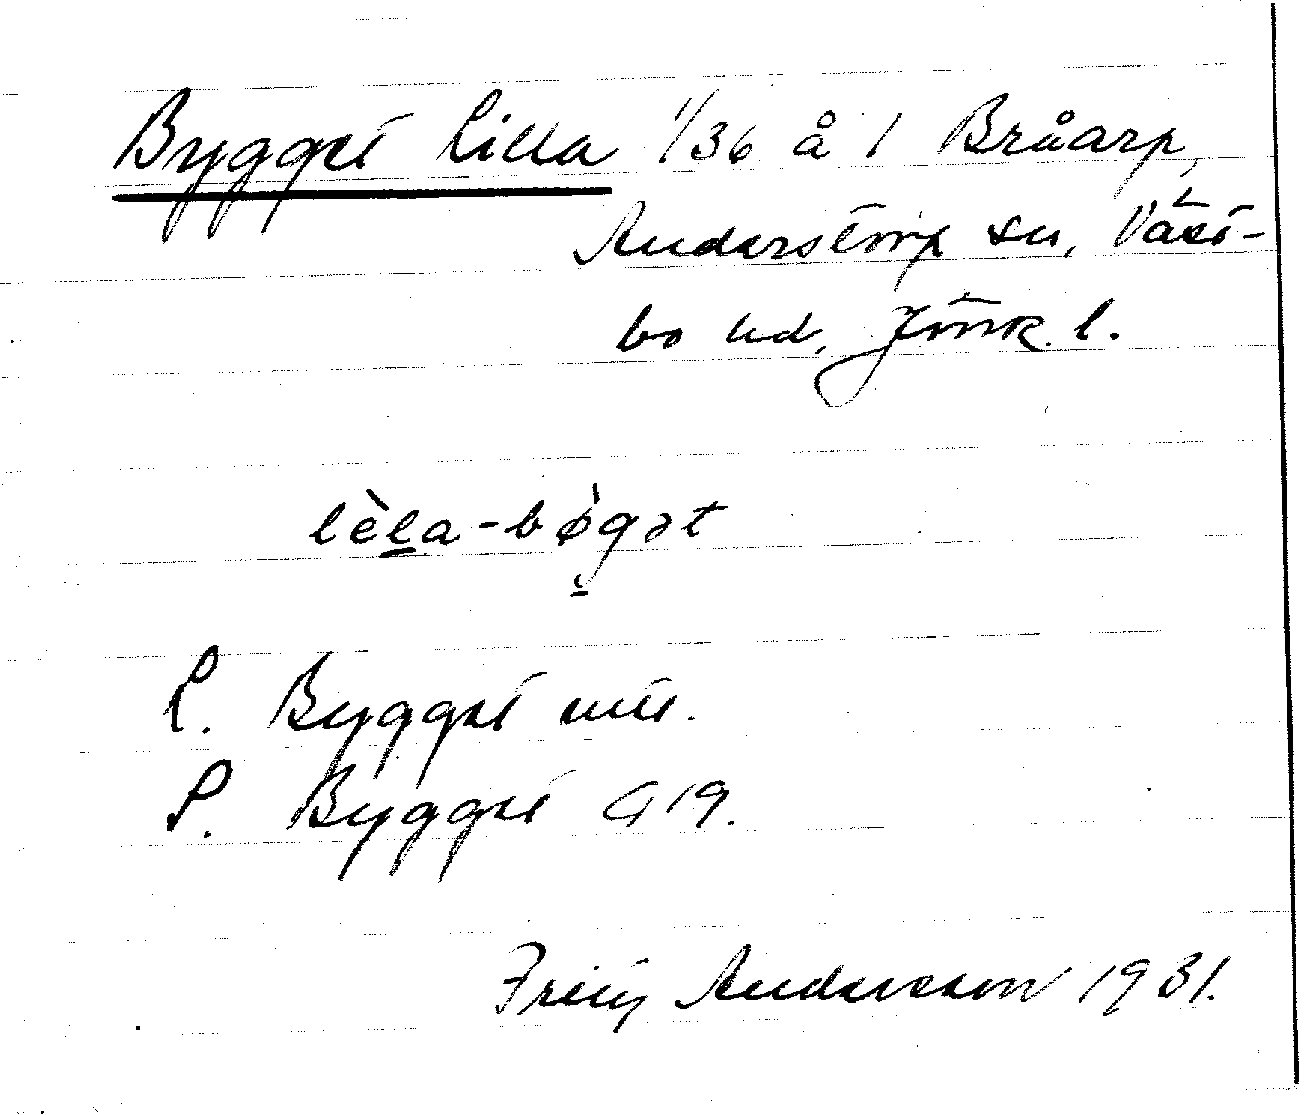 Bygget Lilla 1/36 å 1 Bråarp,
Anderstorp sn, Väst-
bo hd, Jönk. l.
lèla-bø̀gət
L. Bygget
P. Bygget G 19.
Andersson 1931.